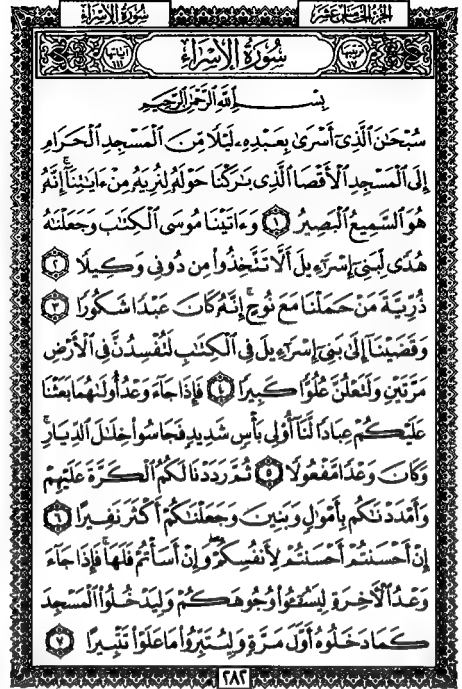 الجزء الخامس عشر
سورة الإسراء
ترتيبها ١٧
سُورَةُ الإِسْرَاءِ
آياتها ١١١
بِسْمِ ٱللَّهِ ٱلرَّحْمَٰنِ ٱلرَّحِيمِ
سُبْحَٰنَ ٱلَّذِىٓ أَسْرَىٰ بِعَبْدِهِۦ لَيْلًا مِّنَ ٱلْمَسْجِدِ ٱلْحَرَامِ
إِلَى ٱلْمَسْجِدِ ٱلْأَقْصَا ٱلَّذِى بَٰرَكْنَا حَوْلَهُۥ لِنُرِيَهُۥ مِنْ ءَايَٰتِنَآ ۚ إِنَّهُۥ
هُوَ ٱلسَّمِيعُ ٱلْبَصِيرُ ١ وَءَاتَيْنَا مُوسَى ٱلْكِتَٰبَ وَجَعَلْنَٰهُ
هُدًى لِّبَنِىٓ إِسْرَٰٓءِيلَ أَلَّا تَتَّخِذُوا۟ مِن دُونِى وَكِيلًا ٢
ذُرِّيَّةَ مَنْ حَمَلْنَا مَعَ نُوحٍ ۚ إِنَّهُۥ كَانَ عَبْدًا شَكُورًا ٣
وَقَضَيْنَآ إِلَىٰ بَنِىٓ إِسْرَٰٓءِيلَ فِى ٱلْكِتَٰبِ لَتُفْسِدُنَّ فِى ٱلْأَرْضِ
مَرَّتَيْنِ وَلَتَعْلُنَّ عُلُوًّا كَبِيرًا ٤ فَإِذَا جَآءَ وَعْدُ أُولَىٰهُمَا بَعَثْنَا
عَلَيْكُمْ عِبَادًا لَّنَآ أُو۟لِى بَأْسٍ شَدِيدٍ فَجَاسُوا۟ خِلَٰلَ ٱلدِّيَارِ ۚ
وَكَانَ وَعْدًا مَّفْعُولًا ٥ ثُمَّ رَدَدْنَا لَكُمُ ٱلْكَرَّةَ عَلَيْهِمْ
وَأَمْدَدْنَٰكُم بِأَمْوَٰلٍ وَبَنِينَ وَجَعَلْنَٰكُمْ أَكْثَرَ نَفِيرًا ٦
إِنْ أَحْسَنتُمْ أَحْسَنتُمْ لِأَنفُسِكُمْ ۖ وَإِنْ أَسَأْتُمْ فَلَهَا ۚ فَإِذَا جَآءَ
وَعْدُ ٱلْءَاخِرَةِ لِيَسُۥٓـُٔوا۟ وُجُوهَكُمْ وَلِيَدْخُلُوا۟ ٱلْمَسْجِدَ
كَمَا دَخَلُوهُ أَوَّلَ مَرَّةٍ وَلِيُتَبِّرُوا۟ مَا عَلَوْا۟ تَتْبِيرًا ٧
٢٨٢